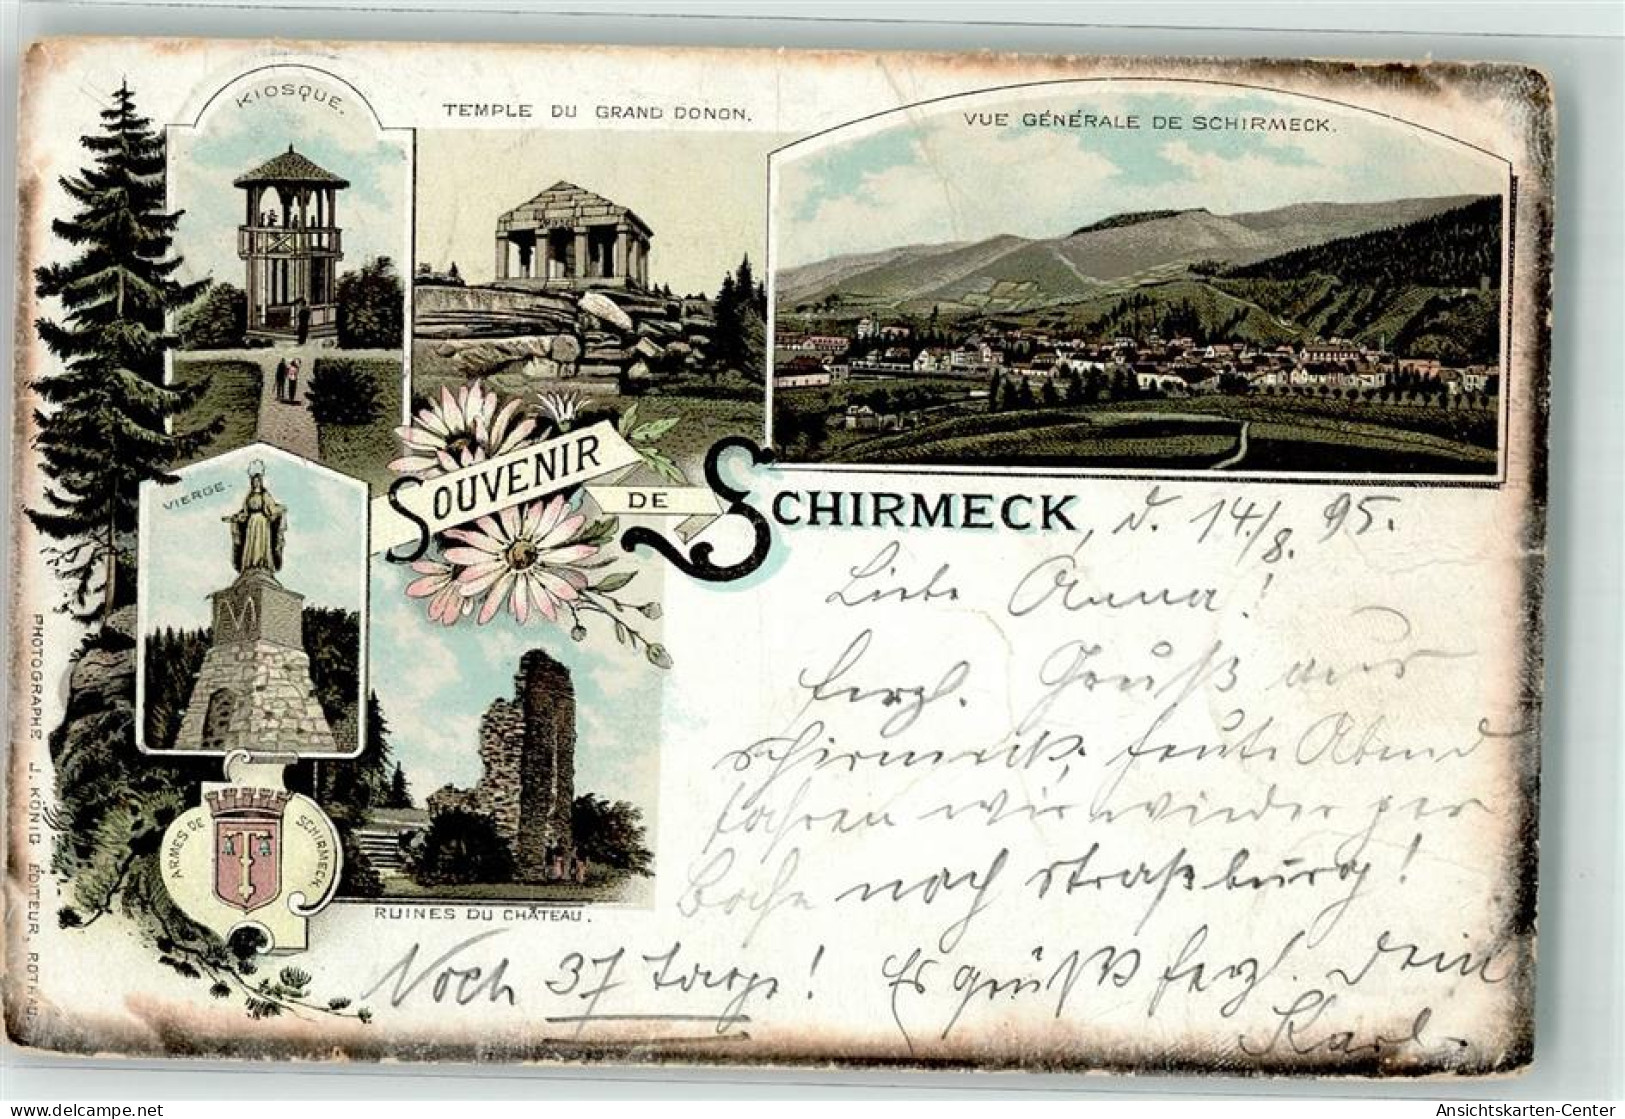 KIOSQUE.
TEMPLE DU GRAND DONON.
VUE GÉNÉRALE DE SCHIRMECK.
VIERGE.
SOUVENIR DE SCHIRMECK
, d. 14/8. 95.
Liebe Anna!
Herzl. Gruß aus
Schirmeck, heute Abend
fahren wir wieder per
nach Straßburg!
Noch 37 Tage! Es grüßt herzl. Dein
Karl.
ARMES DE SCHIRMECK
RUINES DU CHÂTEAU.
PHOTOGRAPHE J. KÖNIG ÉDITEUR, ROTHAU
www.delcampe.net
Ansichtskarten-Center